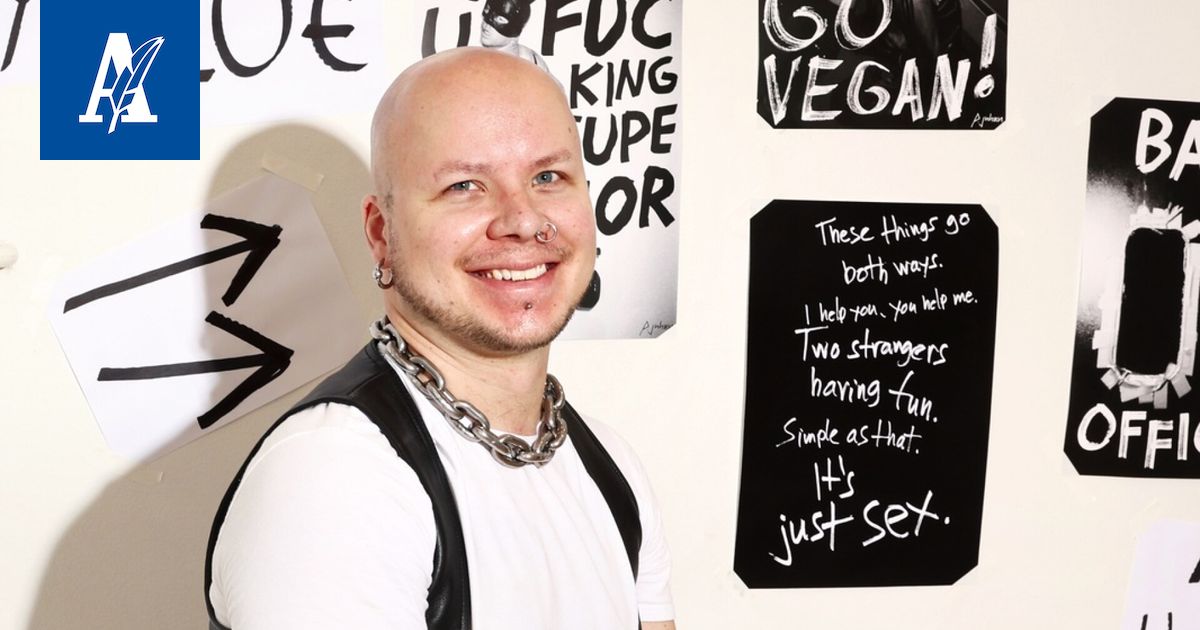 A
FUC
KING
GO
VEGAN!
These things go
both ways.
I help you, you help me.
Two strangers
having fun.
Simple as that.
It's
just sex.
BA
OFFIC